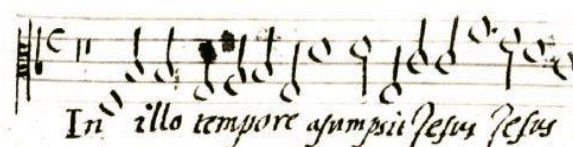 In illo tempore asumpsit Jesus Jesus